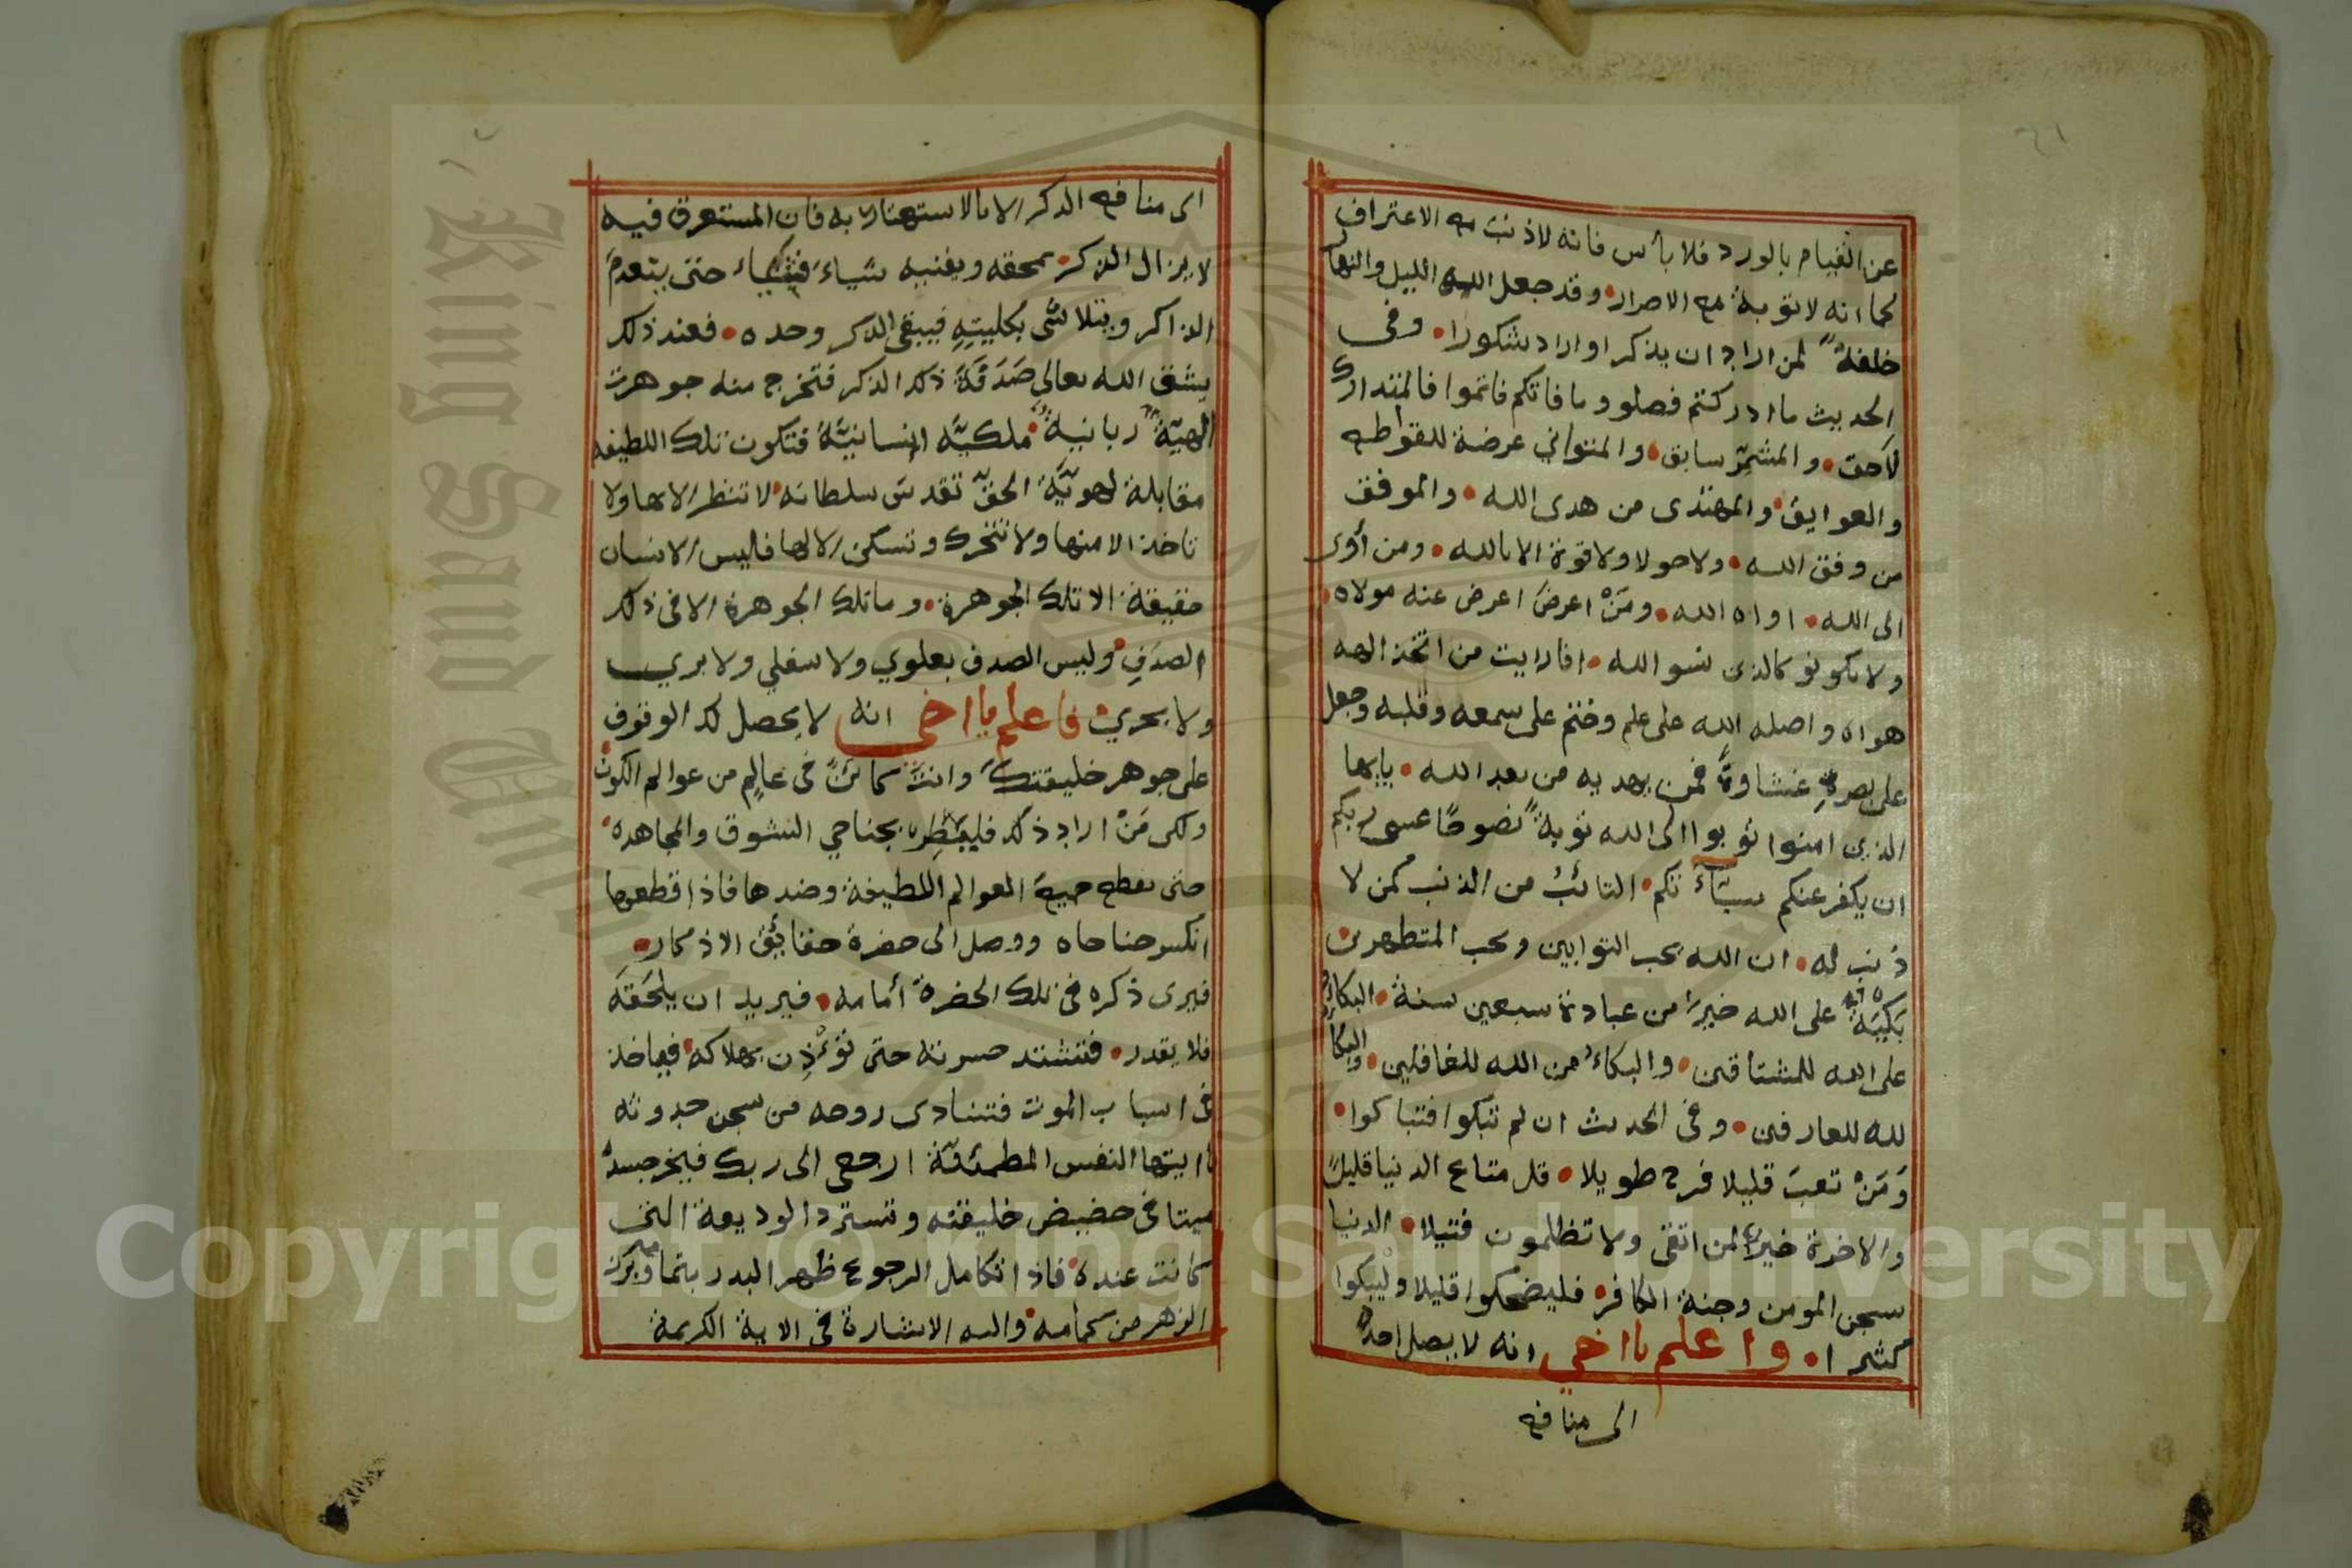 عن القيام بالورد فلا بأس فانه لا ذنب مع الاعتراف
كما انه لا توبة مع الاصرار وقد جعل الله الليل والنهار
خلفة لمن اراد ان يذكر او اراد شكورا وفى
الحديث ما ادركتم فصلو وما فاتكم فاتموا فالمتدارك
لاحق والمشمر سابق والمتواني عرضة للقواطع
والعوايق والمهتدى من هدى الله والموفق
من وفق الله ولا حولا ولا قوة الا بالله ومن أوى
الى الله اواه الله ومن اعرض اعرض عنه مولاه
ولا تكونو كالذى نسو الله افرايت من اتخذ الهه
هواه واضله الله على علم وختم على سمعه وقلبه وجعل
على بصره غشاوة فمن يهديه من بعد الله يايها
الذين امنوا توبوا الى الله توبة نصوحا عسى ربكم
ان يكفر عنكم سيئاتكم التائب من الذنب كمن لا
ذنب له ان الله يحب التوابين ويحب المتطهرين
على الله خير من عبادة سبعين سنة البكاء
على الله للمشتاقين والبكاء من الله للغافلين والبكا
لله للعارفين وفى الحديث ان لم تبكوا فتباكوا
ومن تعب قليلا فرح طويلا قل متاع الدنيا قليل
والاخرة خير لمن اتقى ولا تظلمون فتيلا الدنيا
سجن المومن وجنة الكافر فليضحكوا قليلا وليبكوا
كثيرا واعلم يا اخي انه لا يصل احد
الى منافع
الى منافع الذكر الا بالاستهتار به فان المستغرق فيه
لا يزال الذكر يمحقه ويفنيه شياء فشياء حتى ينعدم
الذاكر ويتلاشى بكليته فيبقى الذكر وحده فعند ذلك
يشق الله تعالى صدفة ذلك الذكر فتخرج منه جوهرة
الهية ربانية ملكية انسانية فتكون تلك اللطيفة
مقابلة لهوية الحق تقدس سلطانه لا تنظر الا بها ولا
تاخذ الا منها ولا تتحرك وتسكن الا لها فليس الانسان
حقيقة الا تلك الجوهرة وما تلك الجوهرة الا فى ذلك
الصدف وليس الصدف بعلوي ولا سفلي ولا بري
ولا بحري فاعلم يا اخي انه لا يحصل لك الوقوف
على جوهر خليقتك وانت كائن فى عالم من عوالم الكون
ولكن من اراد ذلك فليطر بجناحي الشوق والمجاهدة
حتى يقطع جميع العوالم اللطيفة وضدها فاذا قطعها
انكسر جناحاه ووصل الى حضرة حقائق الاذكار
فيرى ذكره فى تلك الحضرة أمامه فيريد ان يلحقه
فلا يقدر فتشتد حسرته حتى تؤذن بهلاكه فياخذ
فى اسباب الموت فتنادى روحه من سجن حدوثه
يا ايتها النفس المطمئنة ارجعى الى ربك فيخر جسده
ميتا فى حضيض خليقته وتسترد الوديعة التى
كانت عنده فاذا تكامل الرجوع ظهر البدر بتمامه وبرز
الزهر من كمامه واليه الاشارة فى الاية الكريمة
King Saud University
1957
Copyright © King Saud University